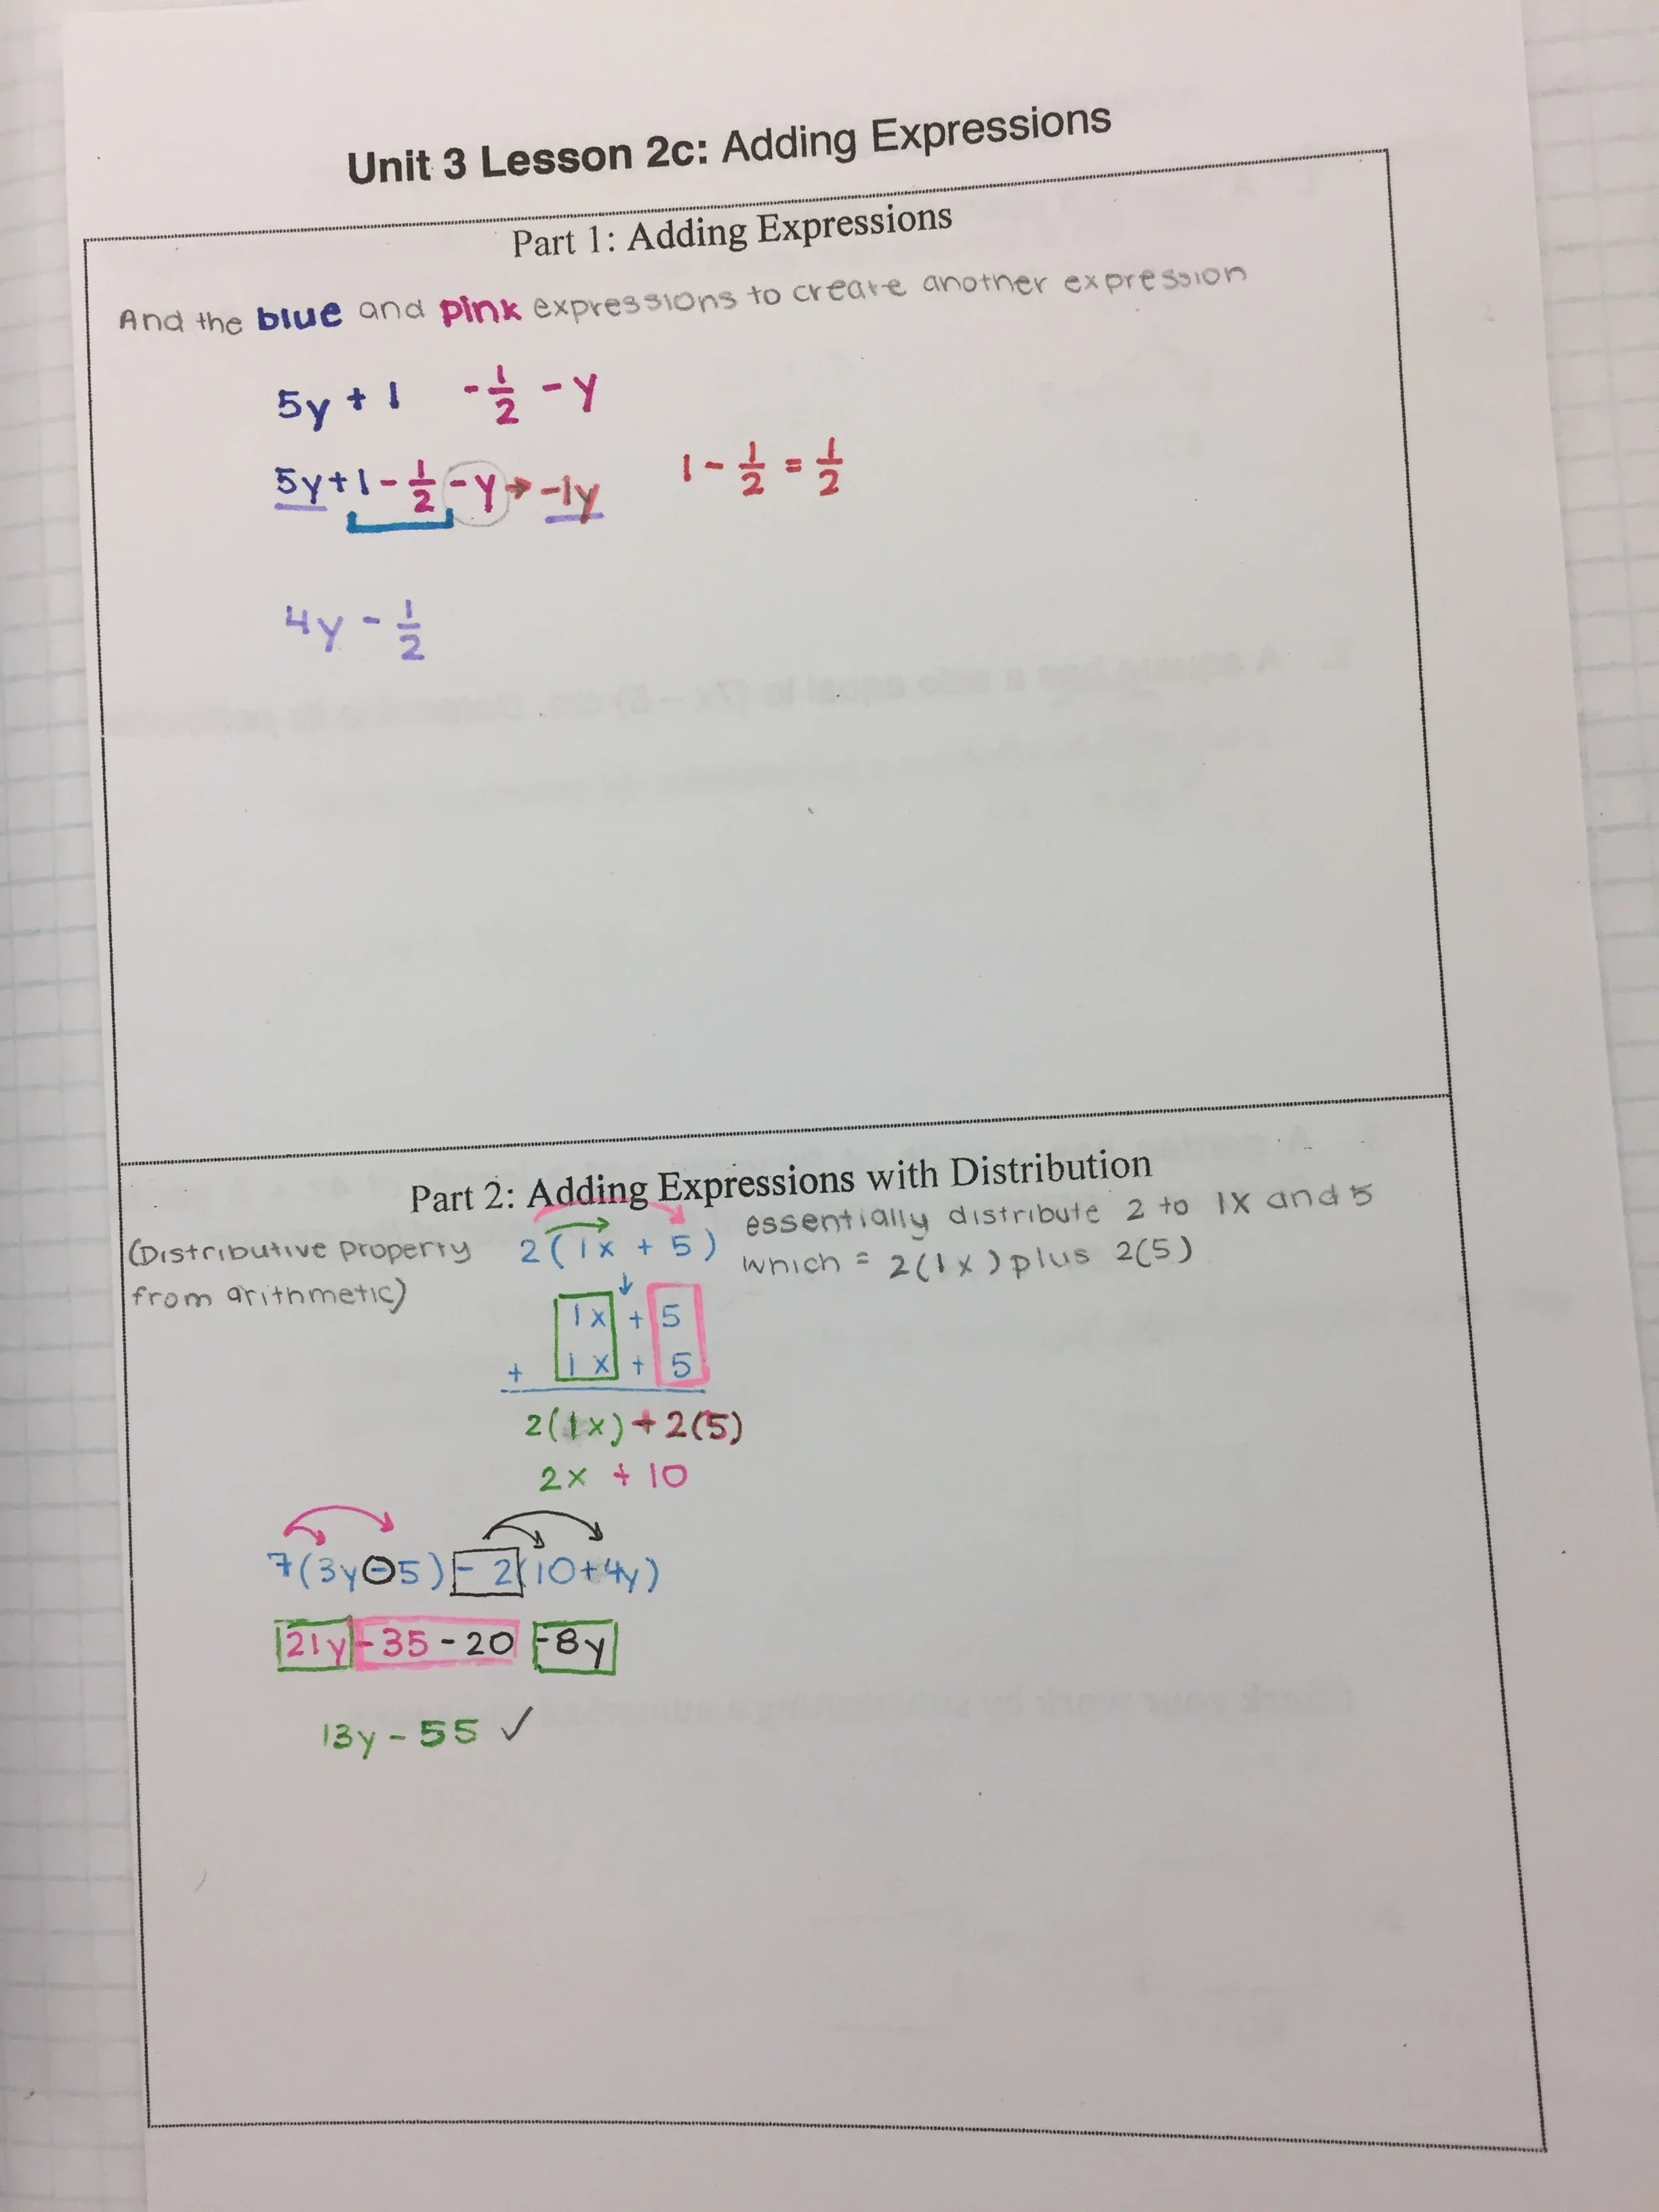 Unit 3 Lesson 2c: Adding Expressions
Part 1: Adding Expressions
And the blue and pink expressions to create another expression
5y + 1 - 1/2 - y
5y + 1 - 1/2 - y → -1y 1 - 1/2 = 1/2
4y - 1/2
Part 2: Adding Expressions with Distribution
(Distributive property 2(1x + 5) essentially distribute 2 to 1x and 5
from arithmetic) which = 2(1x) plus 2(5)
↓
1x + 5
+ 1x + 5
2(1x) + 2(5)
2x + 10
7(3y - 5) - 2(10 + 4y)
21y - 35 - 20 - 8y
13y - 55 ✓